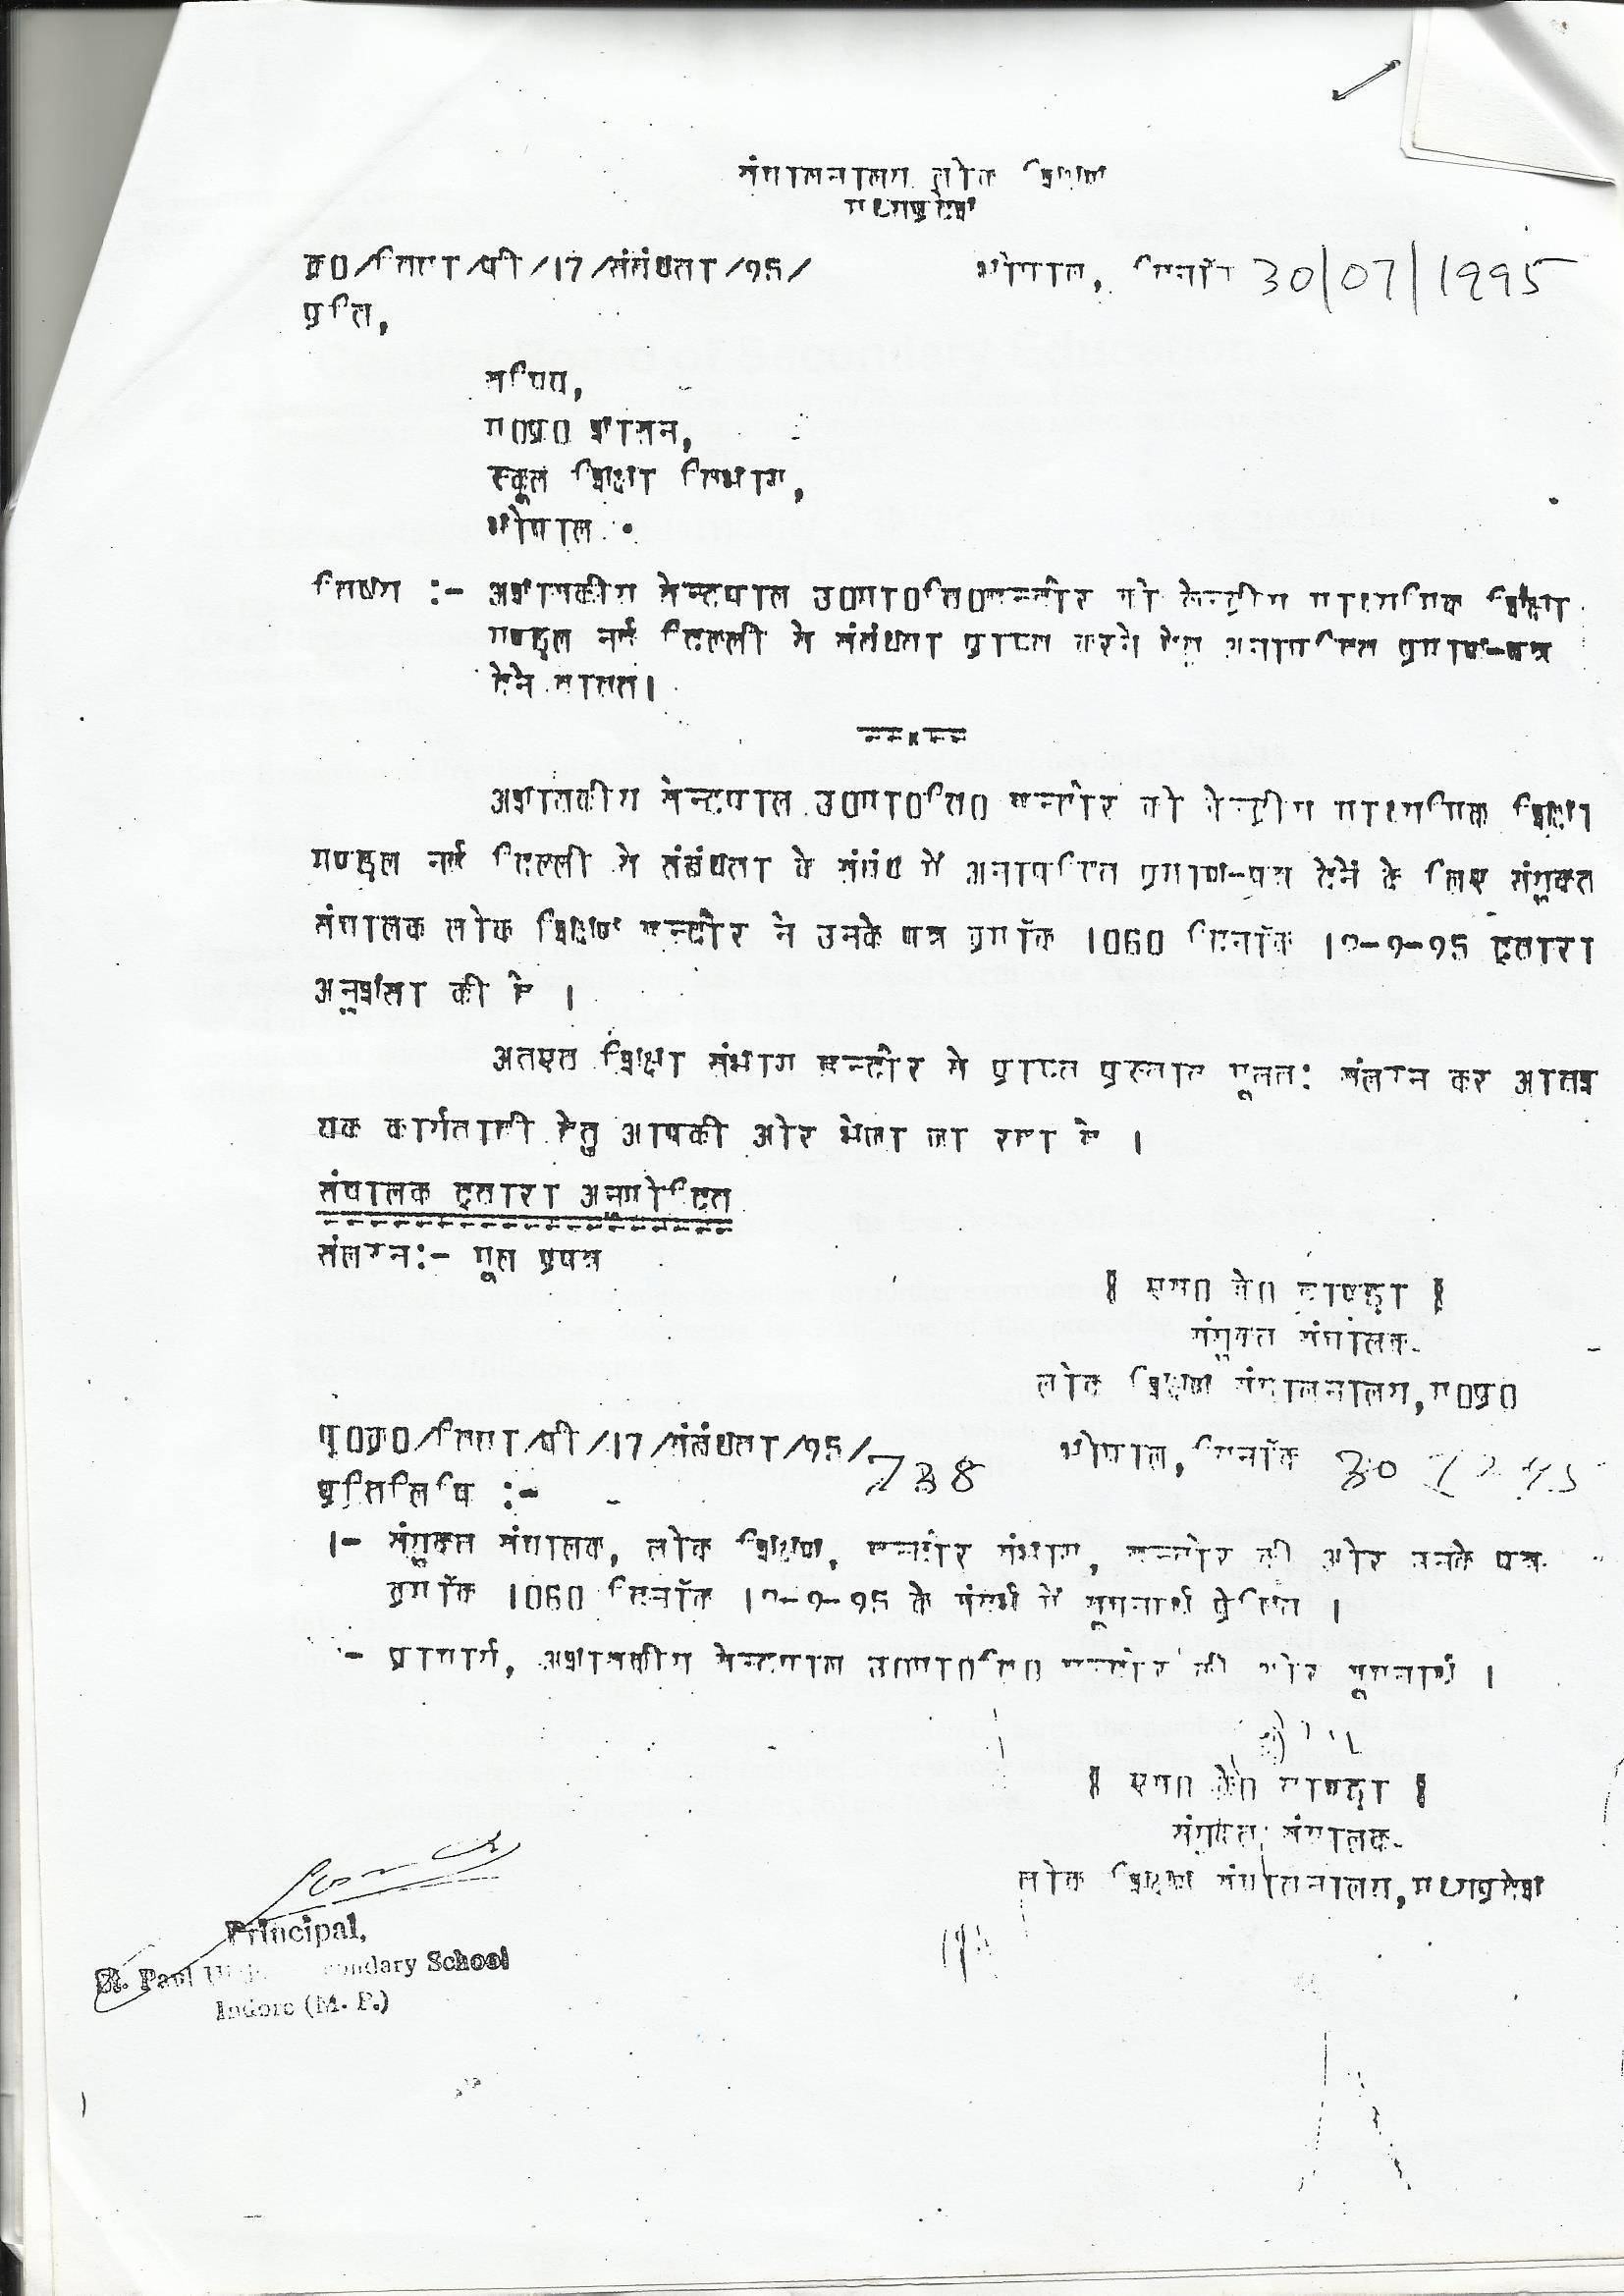 संचालनालय लोक शिक्षण
मध्यप्रदेश
क्र0/विद्या/बी/17/संबंधता/95/ भोपाल, दिनाँक 30/07/1995
प्रति,
सचिव,
म0प्र0 शासन,
स्कूल शिक्षा विभाग,
भोपाल .
विषय :- अशासकीय सेन्टपाल उ0मा0वि0इन्दौर को केन्द्रीय माध्यमिक शिक्षा
मण्डल नई दिल्ली से संबंधता प्राप्त करने हेतु अनापत्ति प्रमाण-पत्र
देने बाबत।
अशासकीय सेन्टपाल उ0मा0वि0 इन्दौर को केन्द्रीय माध्यमिक शिक्षा
मण्डल नई दिल्ली से संबंधता के संबंध में अनापत्ति प्रमाण-पत्र देने के लिए संयुक्त
संचालक लोक शिक्षण इन्दौर ने उनके पत्र क्रमाँक 1060 दिनाँक द्वारा
अनुशंसा की है ।
अतएव शिक्षा संभाग इन्दौर से प्राप्त प्रस्ताव मूलतः संलग्न कर आवश
यक कार्यवाही हेतु आपकी ओर भेजा जा रहा है ।
संचालक द्वारा अनुमोदित
संलग्न:- मूल प्रपत्र
संयुक्त संचालक
लोक शिक्षण संचालनालय,म0प्र0
पृ0क्र0/विद्या/बी/17/संबंधता/95/738 भोपाल, दिनाँक 30
प्रतिलिपि :-
1- संयुक्त संचालक, लोक शिक्षण, इन्दौर संभाग, इन्दौर की ओर उनके पत्र
क्रमाँक 1060 दिनाँक के संदर्भ में सूचनार्थ प्रेषित ।
- प्राचार्य, अशासकीय सेन्टपाल उ0मा0वि0 इन्दौर की ओर सूचनार्थ ।
संयुक्त संचालक
लोक शिक्षण संचालनालय,मध्यप्रदेश
Principal,
St. Paul Higher Secondary School
Indore (M. P.)